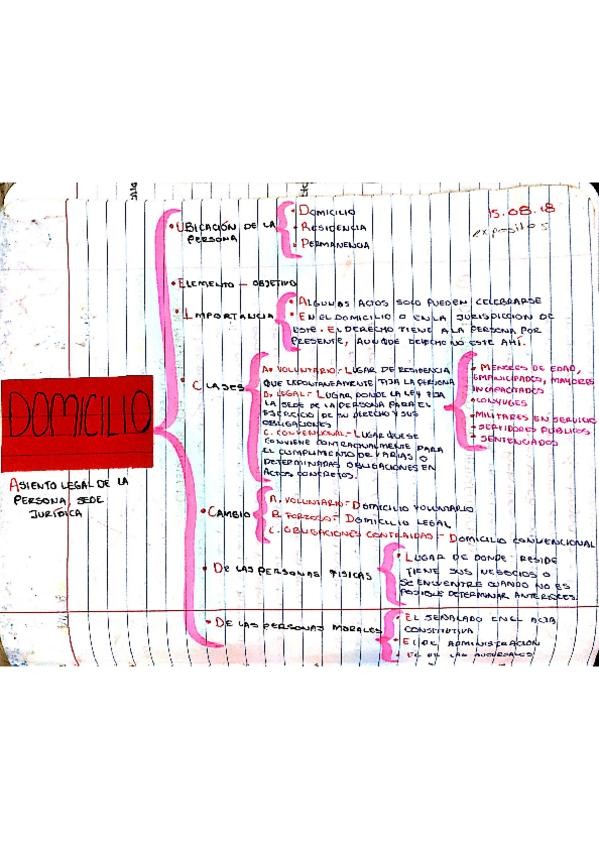 15.08.18
expositos
DOMICILIO
ASIENTO LEGAL DE LA
PERSONA, SEDE
JURÍDICA
• UBICACIÓN DE LA
PERSONA
• DOMICILIO
• RESIDENCIA
• PERMANENCIA
• ELEMENTO - OBJETIVO
• IMPORTANCIA
• ALGUNAS ACTOS SOLO PUEDEN CELEBRARSE
• EN EL DOMICILIO O EN LA JURISDICCION DE
ESTE. EL DERECHO TIENE A LA PERSONA POR
PRESENTE, AUNQUE DE HECHO NO ESTE AHÍ.
• CLASES
A. VOLUNTARIO.- LUGAR DE RESIDENCIA
QUE ESPONTANEAMENTE FIJA LA PERSONA
B. LEGAL.- LUGAR DONDE LA LEY FIJA
LA SEDE DE LA PERSONA PARA EL
EJERCICIO DE SU DERECHO Y SUS
OBLIGACIONES
C. CONVENCIONAL.- LUGAR QUE SE
CONVIENE CONTRACTUALMENTE PARA
EL CUMPLIMIENTO DE VARIAS O
DETERMINADAS OBLIGACIONES EN
ACTOS CONCRETOS.
• MENORES DE EDAD,
EMANCIPADOS, MAYORES
INCAPACITADOS
• CONYUGES
• MILITARES EN SERVICIO
• SERVIDORES PUBLICOS
• SENTENCIADOS
• CAMBIO
A. VOLUNTARIO - DOMICILIO VOLUNTARIO
B. FORZOSO - DOMICILIO LEGAL
C. OBLIGACIONES CONTRAIDAS - DOMICILIO CONVENCIONAL
• DE LAS PERSONAS FISICAS
• LUGAR DE DONDE RESIDE
TIENE SUS NEGOCIOS O
SE ENCUENTRE CUANDO NO ES
POSIBLE DETERMINAR ANTERIORES.
• DE LAS PERSONAS MORALES
• EL SEÑALADO EN EL ACTA
CONSTITUTIVA
• EL DE ADMINISTRACIÓN
• EL DE LAS SUCURSALES